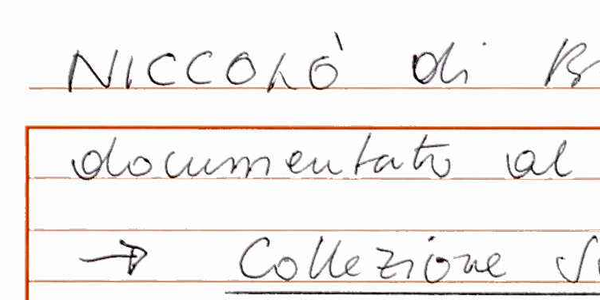 NICCOLÒ di
documentato al
→ Collezione